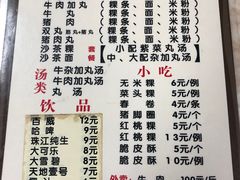 牛肉加丸(粿条、面、米粉)
牛 丸(粿条、面、米粉)
猪 肉(粿条、面、米粉)
双丸 (粿条、面、米粉)
猪肉丸(粿条、面、米粉)
沙茶粿 套 小配紫菜丸汤
沙茶面 餐 中、大配杂加丸汤
汤类 牛杂加丸汤
牛肉加丸汤
丸 汤
小吃
无米粿 6元/例
菜头粿 5元/例
春 卷 4元/条
猪脚圈 4元/个
红桃粿 5元/个
脆皮肠 4元/条
脆皮酥 10元/例
饮品
百威 12元
哈啤 9元
珠江纯生 9元
大可乐 8元
大雪碧 8元
天地壹号 7元